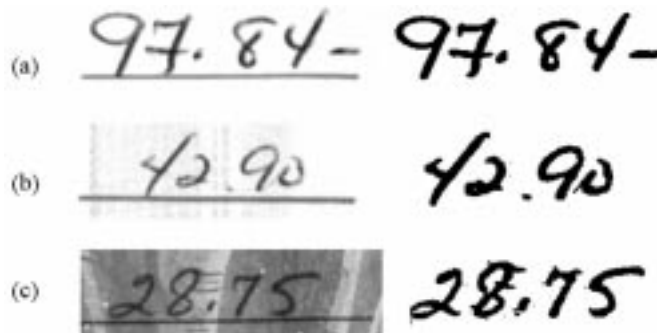 (a) 97.84- 97.84-
(b) 42.90 42.90
(c) 28.75 28.75